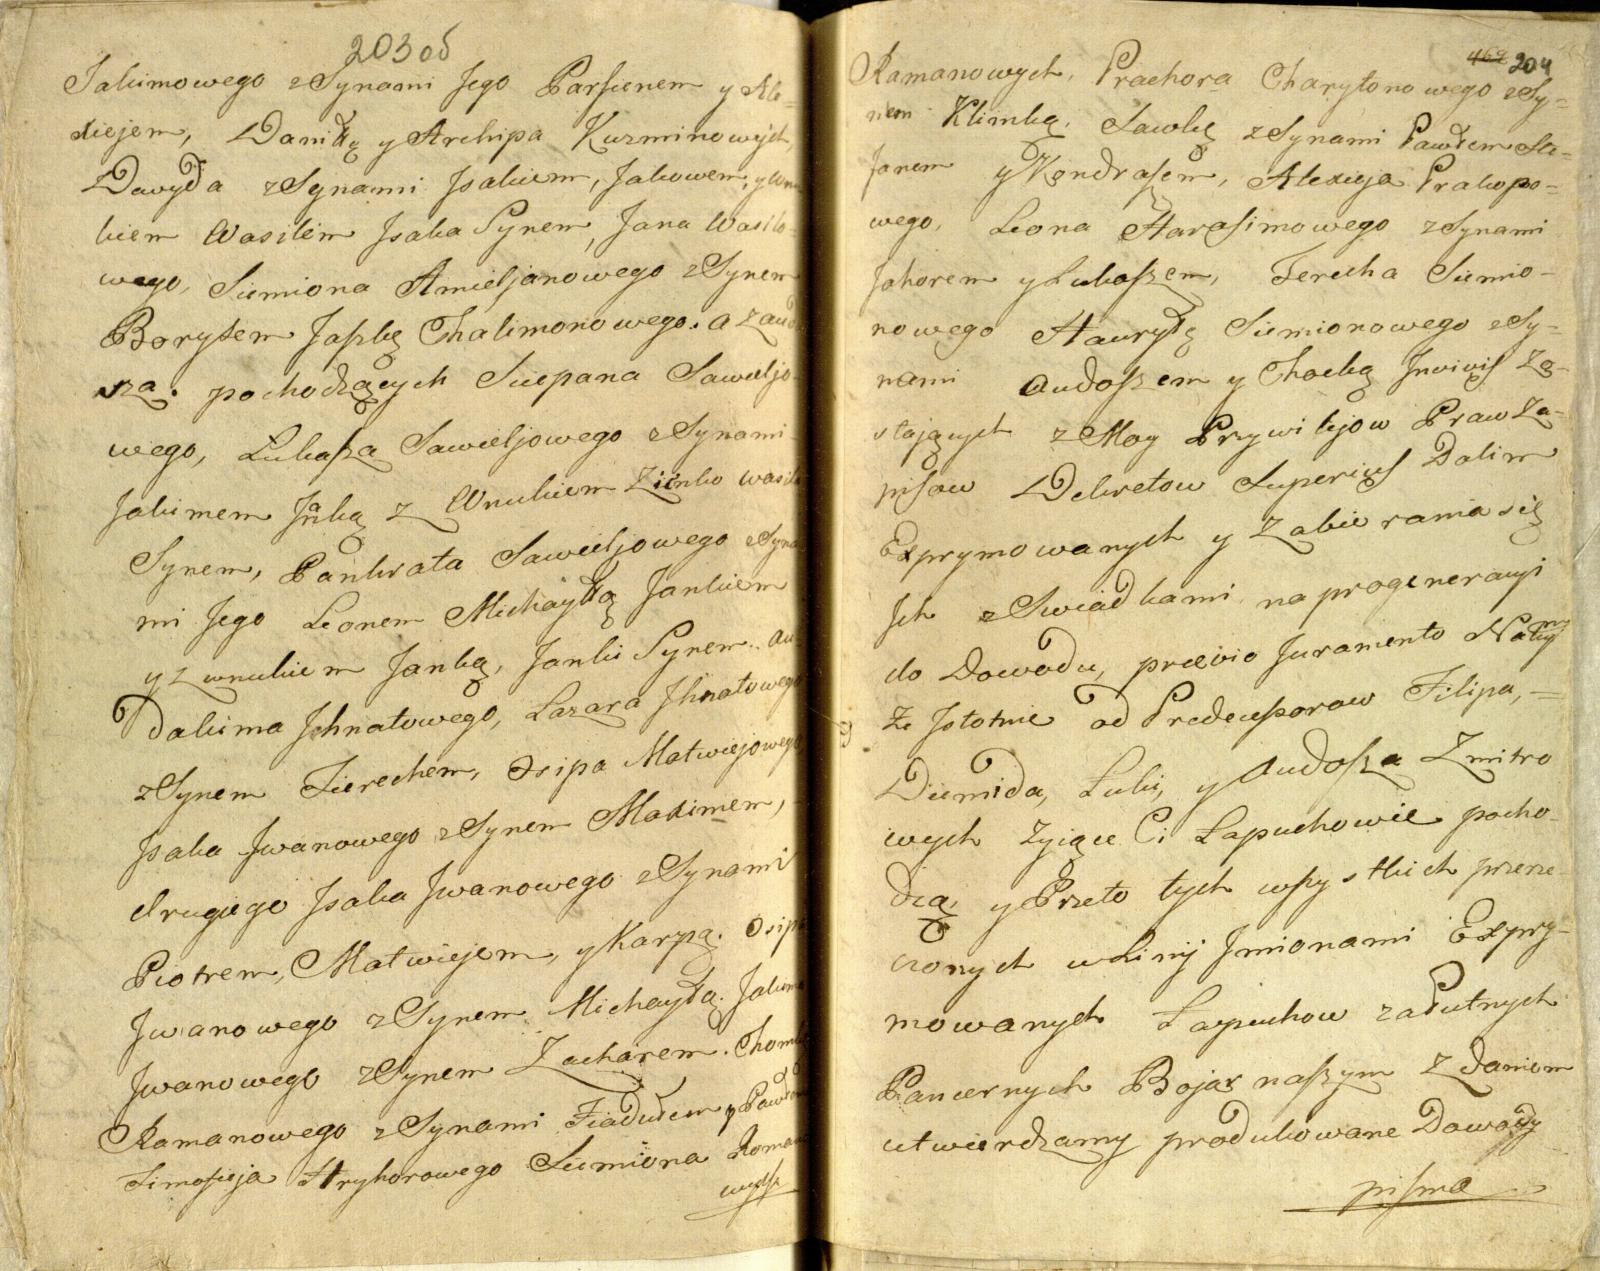 203 об
Jakimowego z Synami Jego Parfienem y Ale-
xiejem, Daniłę y Archipa Kuzminowych,
Dawyda z Synami Jsakiem, Jakowem, y Wnu
kiem Wasilem Jsaka Synem, Jana Wasilo-
wego, Siemiona Amieljanowego z Synem
Borysem Jaszkę Chalimonowego. a z Audo
sza. pochodzących Sciepana Sawieljo-
wego, Łukasza Sawieljowego z Synami
Jakimem Janką z Wnukiem Zieńko Wasila
Synem, Pankrata Sawieljowego z Syna
mi Jego Leonem Michayłą Jankiem
y z wnukiem Janką, Janki Synem. Au-
dakima Jhnatowego, Łazara Jhnatowego
z Synem Tierechem, Osipa Matwiejowego
Jsaka Jwanowego z Synem Maximem,
drugiego Jsaka Jwanowego z Synami
Piotrem, Matwiejem, y Karpą. Osipa
Jwanowego z Synem Michayłą. Jakima
Jwanowego z Synem Zacharem. Chomk
Ramanowego z Synami Fiadułem y Pawłem
Timofieja Hryhorowego Siemiona Roman
wych
469 204
Ramanowych, Prachora Charytonowego z Sy-
nem Klimką, Sawkę z Synami Pawłem Ste-
fanem y Kondrasem, Alexieja Prakopo-
wego, Leona Harasimowego z Synami
Jahorem y Łukaszem, Terecha Siemio-
nowego Hauryłę Siemionowego z Sy-
nami Audoszem y Choćką Jnvivis Zo-
stających z Mocy Przywilejow Praw Za-
pisow Dekretow Superius Datim
Exprymowanych y Zabierania się
Jch z Swiadkami na progeneracyi
do Dowodu, prævio Juramento Nakazny
Ze Jstotnie od Predecessorow Filipa,
Diemida, Łuki, y Audosza Zmitro
wych Zyiące Ci Łapuchowie pocho-
dzą, y Przeto tych wszystkich przerze
czonych w Linij Jmionami Expry-
mowanych Łapuchow zasłutnych
Pancernych Bojar naszym Zdaniem
utwierdzamy produkowane Dowody
pisma